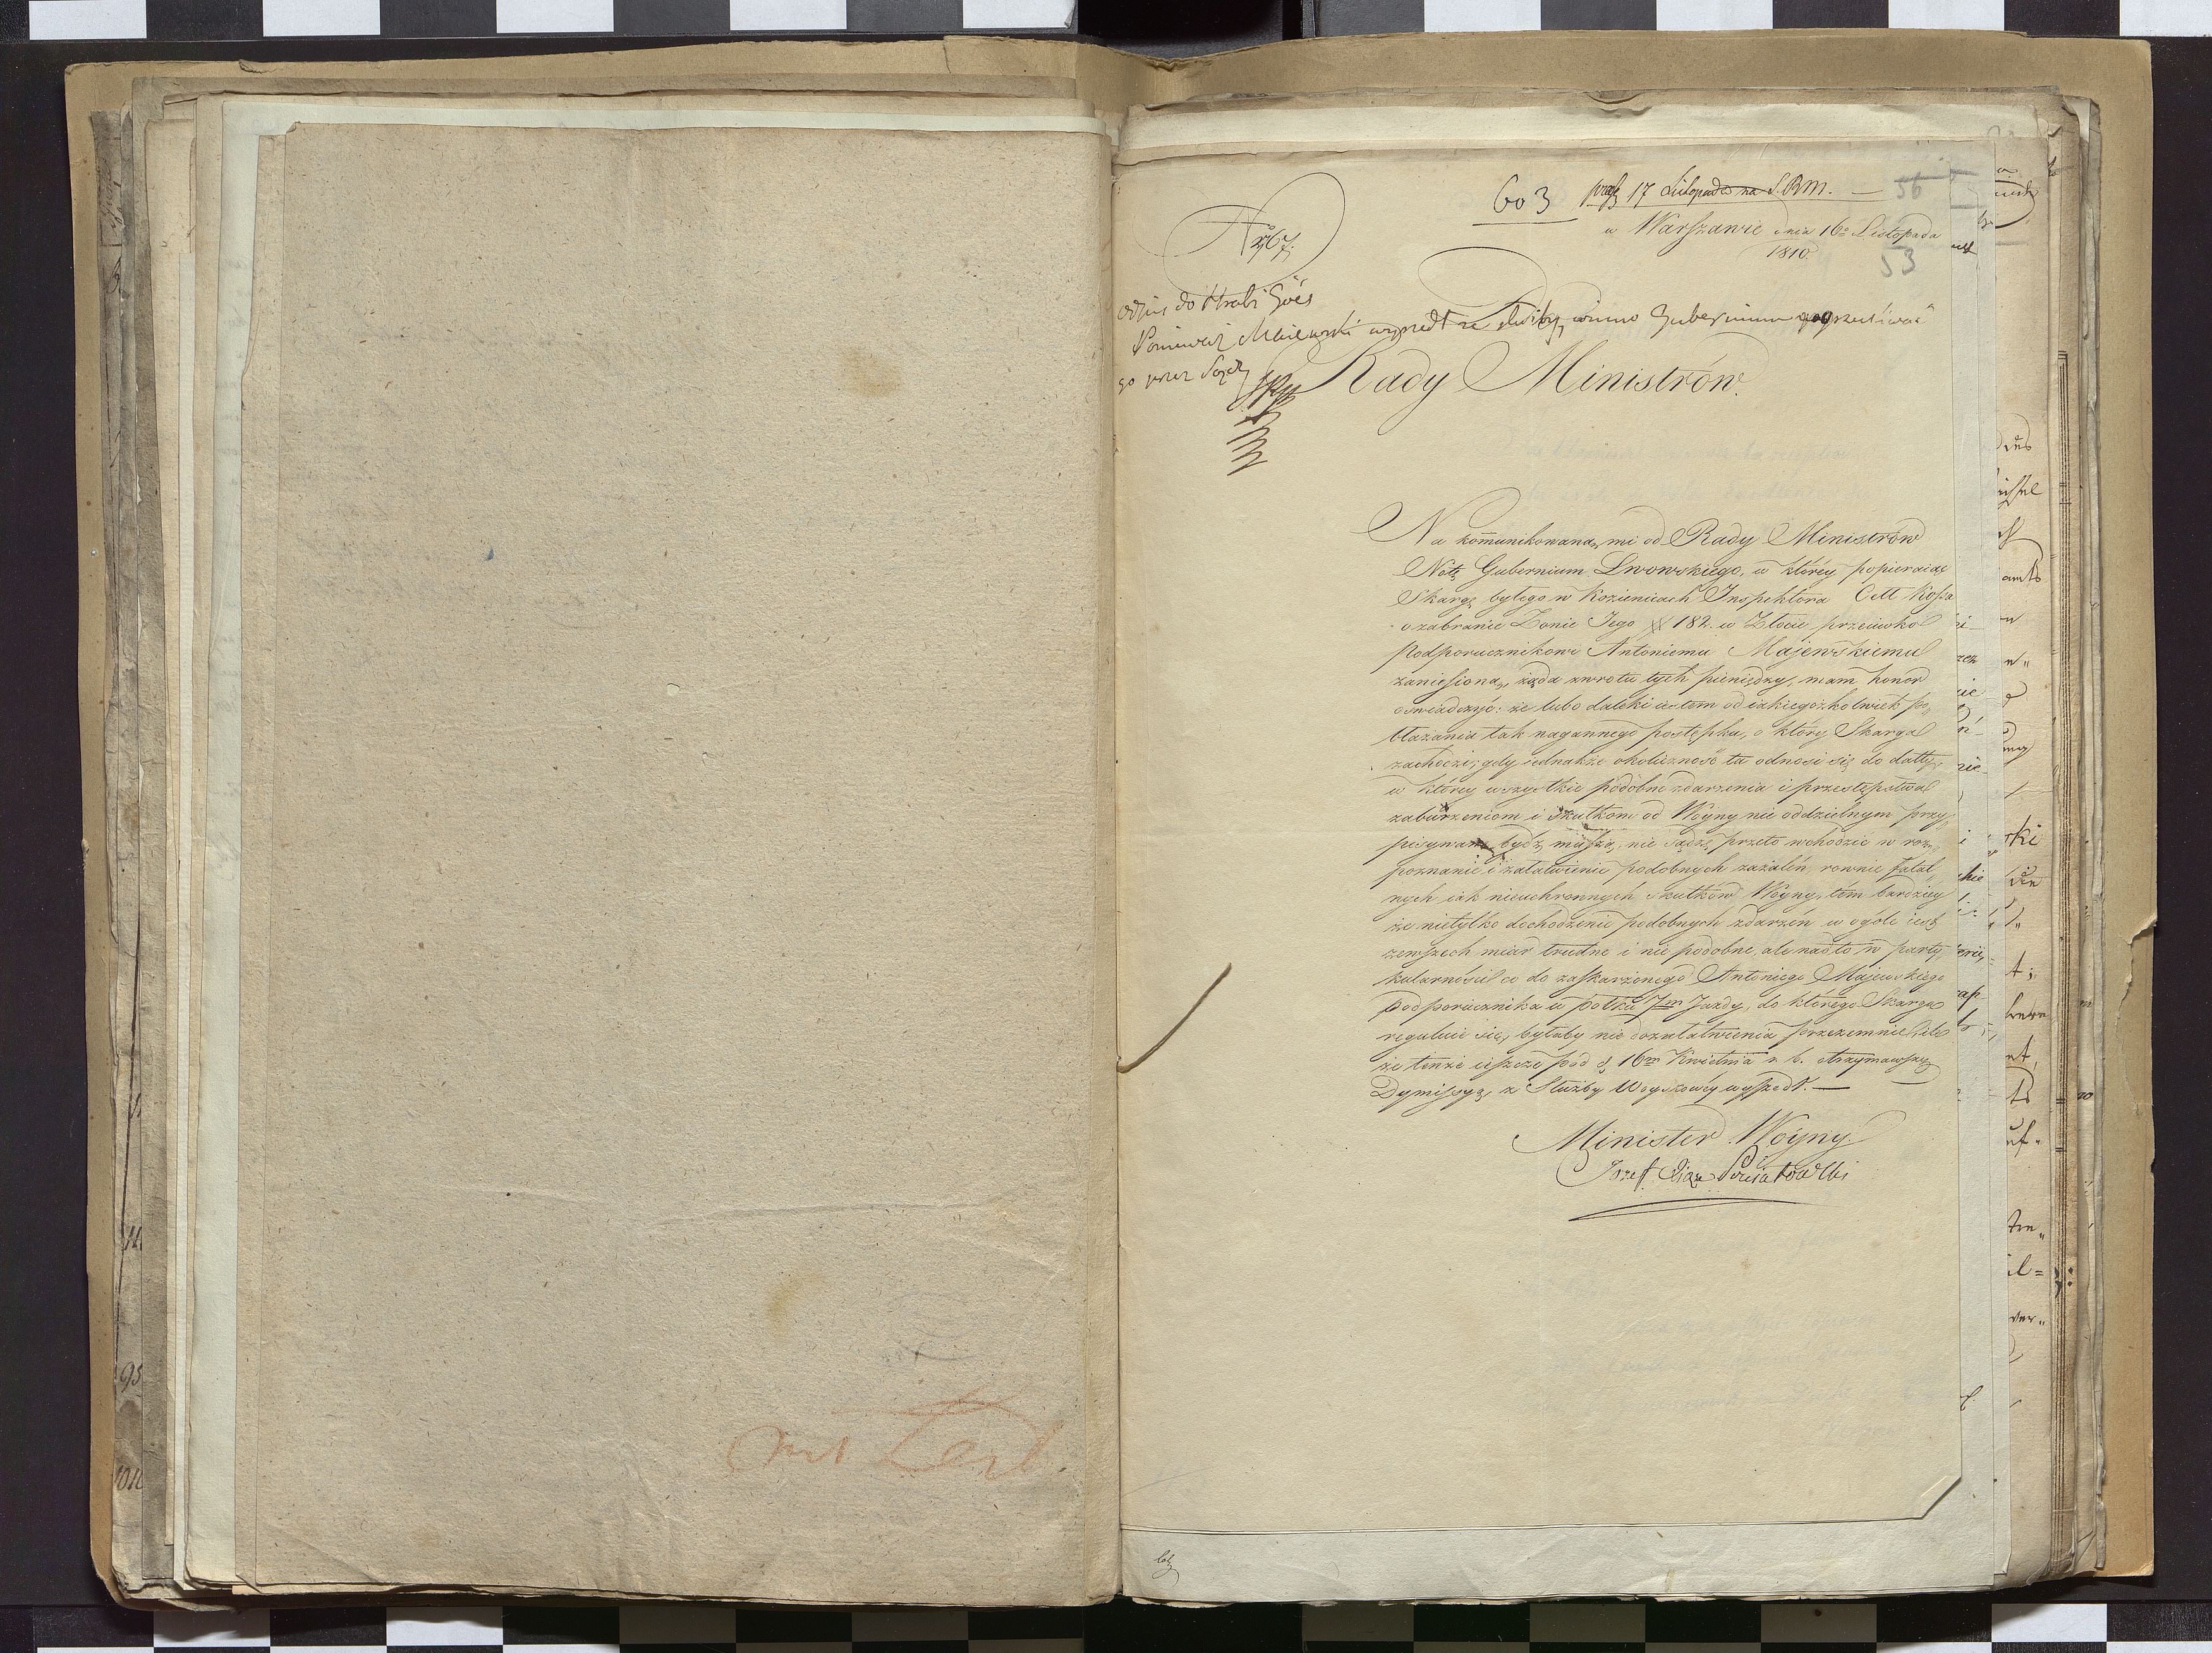 603 17 Listopada na S. R M. — 56
w Warszawie dnia 16º Listopada
1810
53
odpis do Hrabi Goës
Ponieważ Maiewski wyszedł ze służby, winno Gubernium
go przez Sądy
Rady Ministrów.
Na kom̃unikowaną mi od Rady Ministrów
Notę Gubernium Lwowskiego, w którey popieraiąc
Skargę byłego w Kozienicach Inspektora
o zabranie Żonie Jego # 182. w Złocie przeciwko
Podporucznikowi Antoniemu Majewskiemu
zaniesioną, żąda zwrotu tych pieniędzy, mam honor
oświadczyć: że lubo daleki iestem od iakiegożkolwiek po„
błażania tak nagannego postępku, o który Skarga
zachodzi; gdy iednakże okoliczność ta odnosi się do datty,
w którey wszystkie podobne zdarzenia i przestępstwa
zaburzeniom i skutkom od Woyny nie oddzielnym przy„
pisywane bydź muszą, nie sądzę przeto wchodzić w roz„
poznanie i załatwienie podobnych zażaleń, rownie fatal„
nych iak nieuchronnych skutków Woyny, tém bardziey
że nietylko dochodzenie podobnych zdarzeń w ogóle iest
zewszech miar trudne i nie podobne, ale nadto w party„
kularności co do zaskarżonego Antoniego Majewskiego
Podporucznika w półku 7m Jazdy, do którego Skarga
reguluie się, byłaby nie do załatwienia przezemnie, ile
że tenże ieszcze pod d. 16m Kwietnia r. b. otrzymawszy
Dymissyą, z Służby Woyskowey wyszedł. —
Minister Woyny
Jozef Xiąże Poniatowski